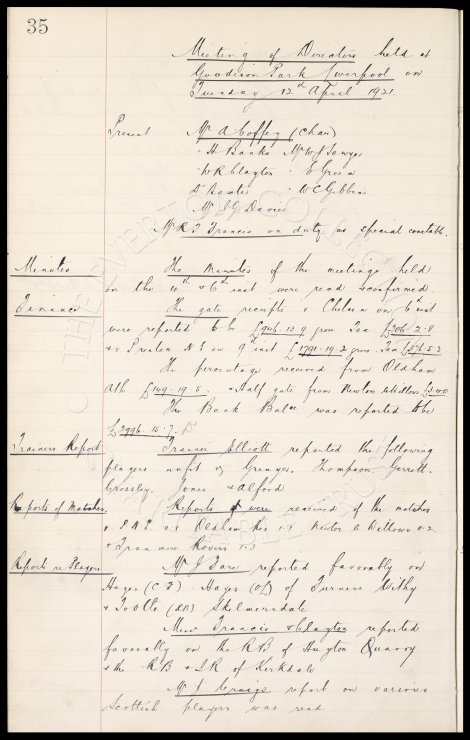 35
Meeting of Directors held at
Goodison Park Liverpool on
Tuesday 12th April 1921.
Present Mr A Coffey (Chan)
" H Banks Mr W J Sawyer
" W R Clayton " E Green
Dr Baxter " W C Gibbins
Mr J J Davies
Mr R T Francis on duty as special constable.
Minutes The Minutes of the meetings held
on the 4th & 6th inst were read & confirmed.
Finance The gate receipts v Chelsea on 6th inst
were reported to be gross Tax
& v Preston N.E on 9th inst £1791-19-2 gross. Tax
The percentage received from Oldham
Ath £149-19-5. & half gate from Newton le Willows
The Bank Balce was reported to be
£2996-15-7. Dr
Trainers Report Trainer Elliott reported the following
players unfit viz Grenyer, Thompson, Garratt,
Crossley, Jones & Alford
Reports of Matches. Reports were received of the matches
v. P.N.E. 0-1 Oldham Res 1-1 Newton le Willows 0-2
& Tranmere Rovers 1-3
Reports re Players Mr J Fare reported favorably on
Hayes (C F) Hayes (OL) of Furness Withy
& Tootle Skelmersdale
Messrs Francis & Clayton reported
favorably on the RB of Huyton Quarry
& the RB & IR of Kirkdale
Mr J Craig's report on various
Scottish players was read.
THE EVERTON COLLECTION
CHARITABLE TRUST